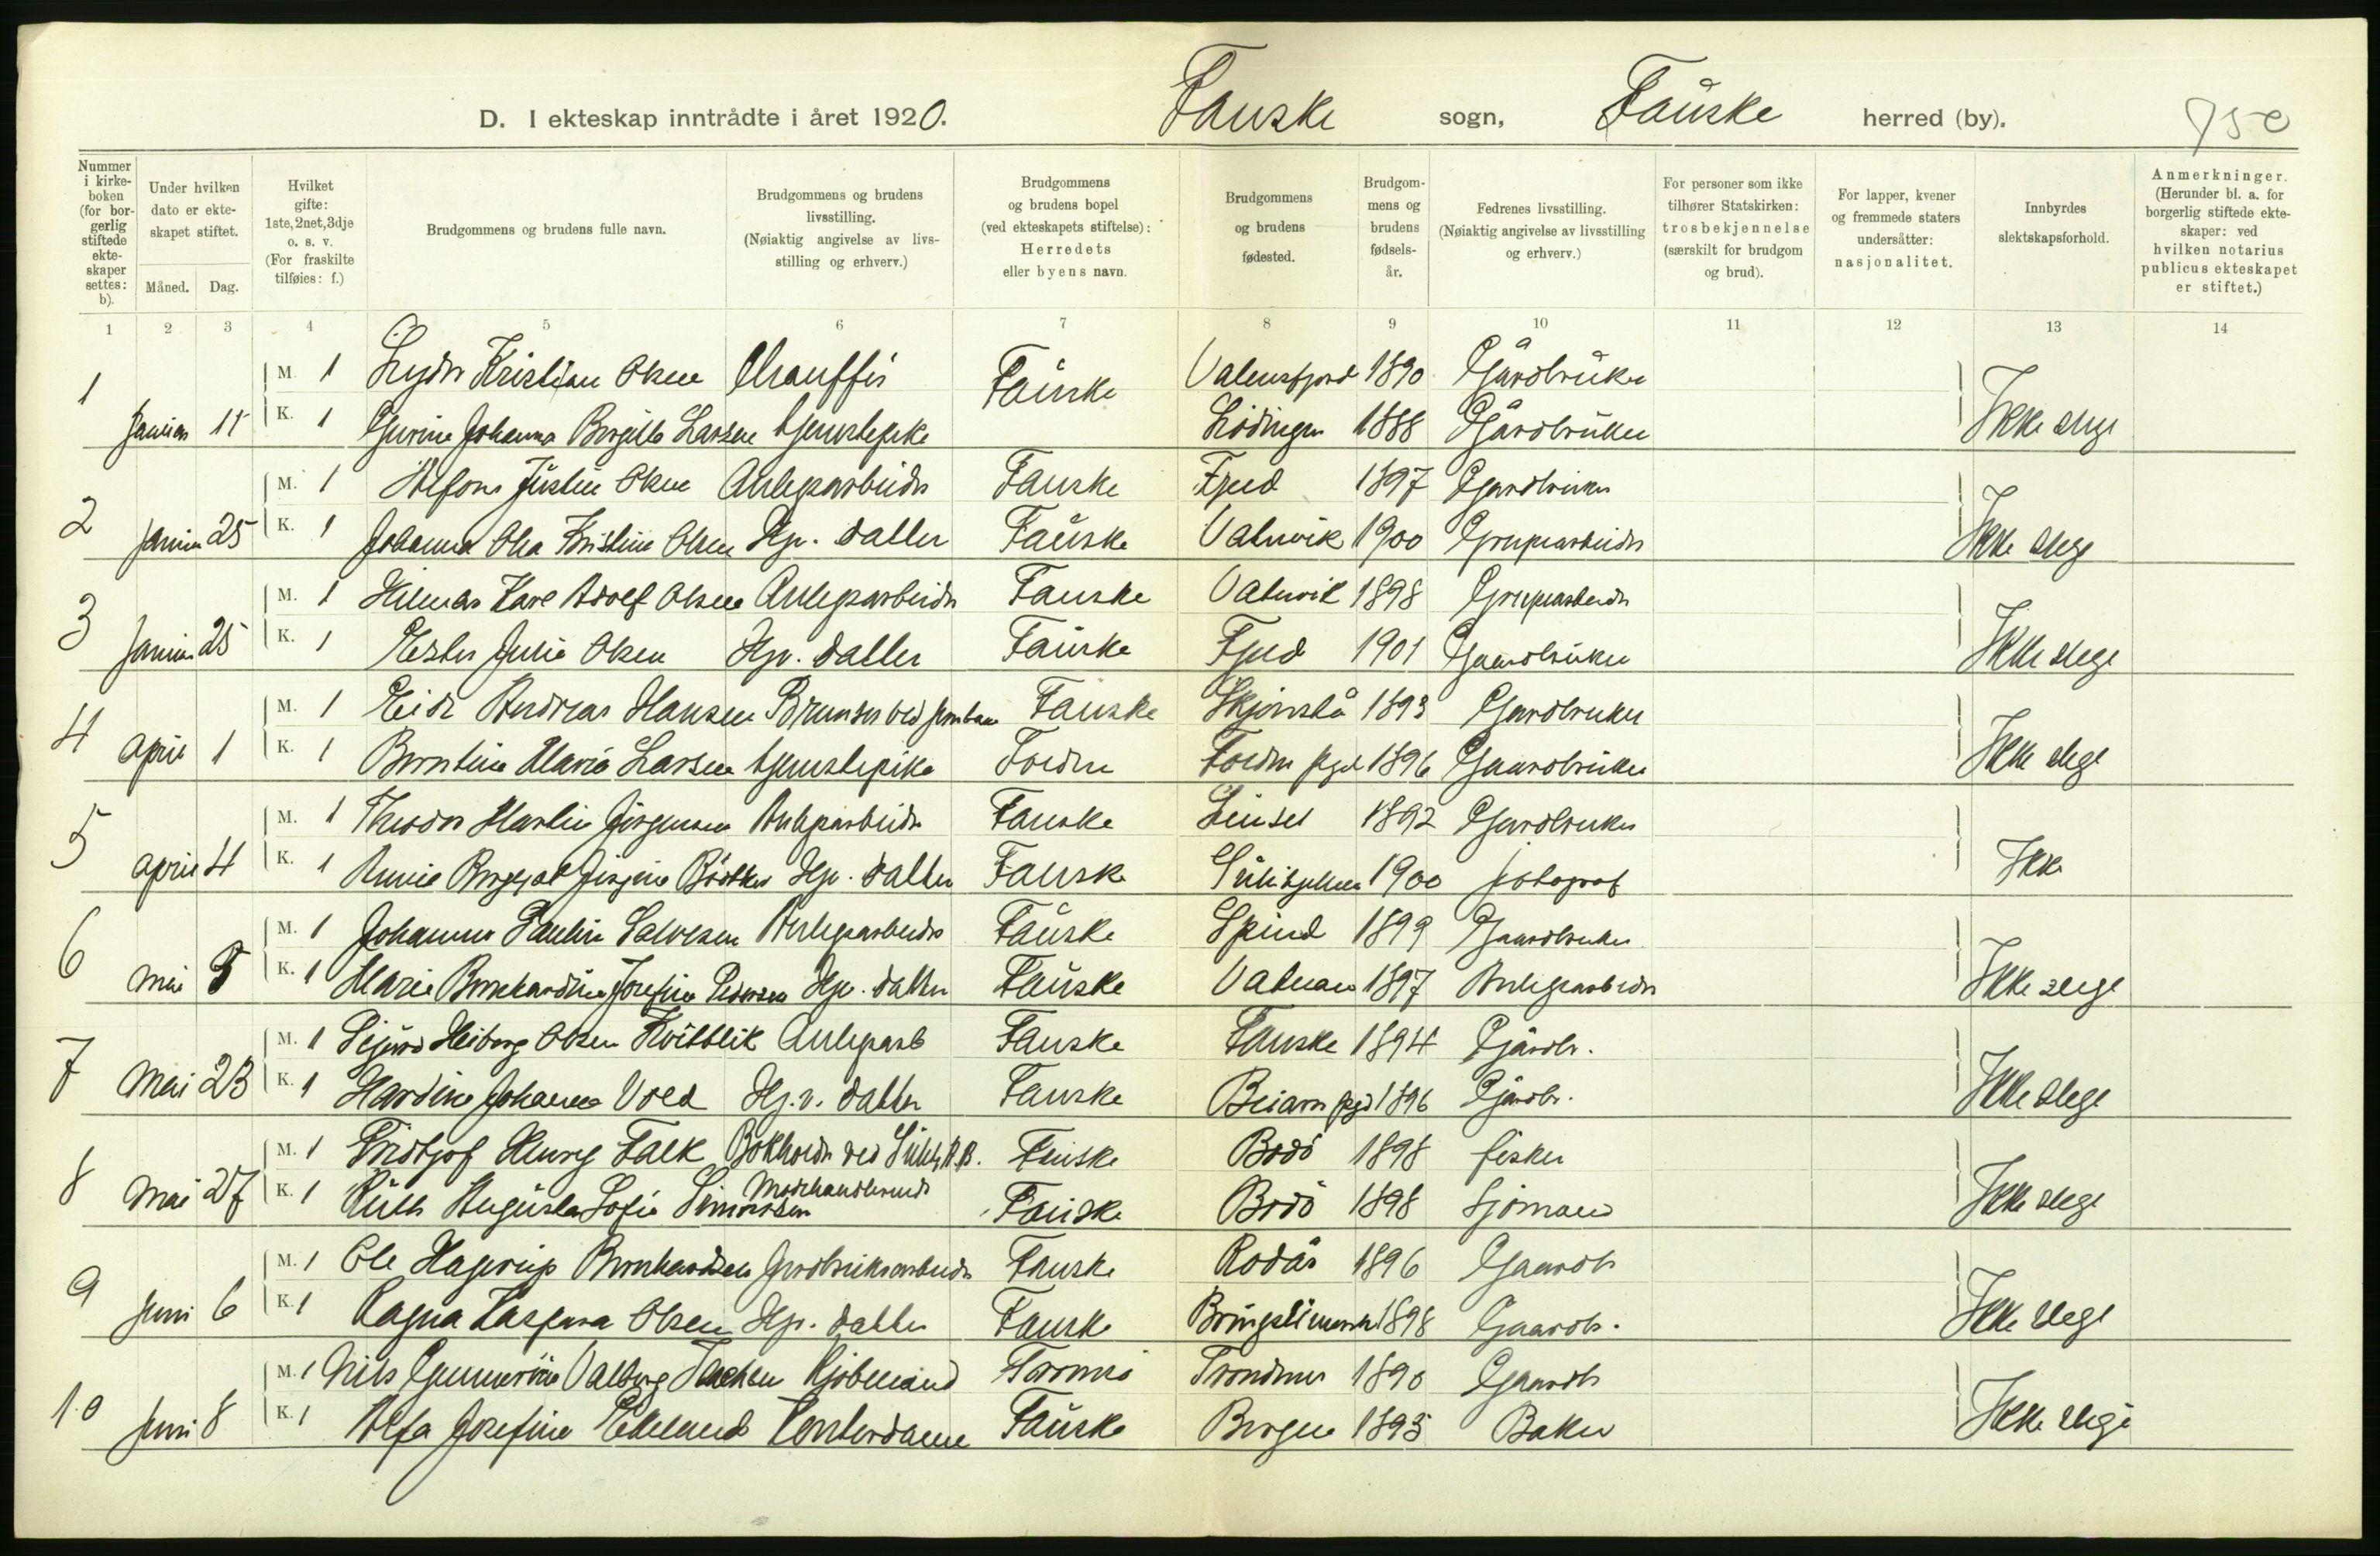 D. I ekteskap inntrådte i året 1920. Fauske sogn, Fauske herred (by).
Nummer i kirke-boken (for bor-gerlig stiftede ekte-skaper settes: b).
Under hvilken dato er ekte-skapet stiftet.
Måned. Dag.
Hvilket gifte: 1ste, 2net, 3dje o. s. v. (For fraskilte tilføies: f.)
Brudgommens og brudens fulle navn.
Brudgommens og brudens livsstilling. (Nøiaktig angivelse av livs-stilling og erhverv.)
Brudgommens og brudens bopel (ved ekteskapets stiftelse): Herredets eller byens navn.
Brudgommens og brudens fødested.
Brudgom-mens og brudens fødsels-år.
Fedrenes livsstilling. (Nøiaktig angivelse av livsstilling og erhverv.)
For personer som ikke tilhører Statskirken: trosbekjennelse (særskilt for brudgom og brud).
For lapper, kvener og fremmede staters undersåtter: nasjonalitet.
Innbyrdes slektskapsforhold.
Anmerkninger. (Herunder bl. a. for borgerlig stiftede ekte-skaper: ved hvilken notarius publicus ekteskapet er stiftet.)
1 2 3 4 5 6 7 8 9 10 11 12 13 14
1 M. 1 Kristian Olsen Chauffør Fauske Valnesfjord 1890 Gårdbruker
Januar 11 K. 1 Johanna Larsen tjenestepike Lødingen 1888 Gårdbruker Ikke slegt
2 M. 1 Alfons Justin Olsen Anlegsarbeider Fauske Fjell 1897 Gardbruker
Januar 25 K. 1 Johanna Kristine Olsen Hjv. datter Fauske Vatnvik 1900 Grubearbeider Ikke slegt
3 M. 1 Hilmar Karl Adolf Olsen Anlegsarbeider Fauske Vatnvik 1898 Grubearbeider
Januar 25 K. 1 Ester Julie Olsen Hjv. datter Fauske Fjell 1901 Gaardbruker Ikke slegt
4 M. 1 Andreas Hansen Fauske Skjønstå 1893 Gardbruker
april 1 K. 1 Berntine Maria Larsen tjenestepike Folden Folden pgd 1896 Gaardbruker Ikke slegt
5 M. 1 Theodor Martin Jørgensen Anlegsarbeider Fauske 1892 Gardbruker
april 4 K. 1 Hjv. datter Fauske Sulitjelma 1900 fotograf Ikke
6 M. 1 Johannes Paulin Salvesen Anlegsarbeider Fauske Spind 1899 Gaardbruker
mai K. 1 Marie Bernhardine Josefine Pedersen Hjv. datter Fauske 1897 Anlegsarbeider Ikke slegt
7 M. 1 Sigurd Heiberg Olsen Kvitblik Anlegsarb Fauske Fauske 1894 Gårdbr.
Mai 23 K. 1 Hardine Johanna Vold Hj.v. datter Fauske Beiarn pgd 1896 Gårdbr. Ikke slegt
8 M. 1 Fridtjof Henry Falk Bokholder ved A.B. Fauske Bodö 1898 fisker
Mai 27 K. 1 Ruth Augusta Sofie Simonsen Fauske Bodö 1898 Sjömand Ikke slegt
9 M. 1 Ole Hagerup Bernhardsen Gardbruksarbeider Fauske Rödås 1896 Gaardb
Juni 6 K. 1 Ragna Kaspara Olsen Hjv. datter Fauske 1898 Gaardb. Ikke slegt
10 M. 1 Nils Valberg Kjöbmand Tromsö Trondenes 1890 Gaardb
Juni 8 K. 1 Alfa Josefine Edelund Kontordame Fauske Bergen 1893 Baker Ikke slegt